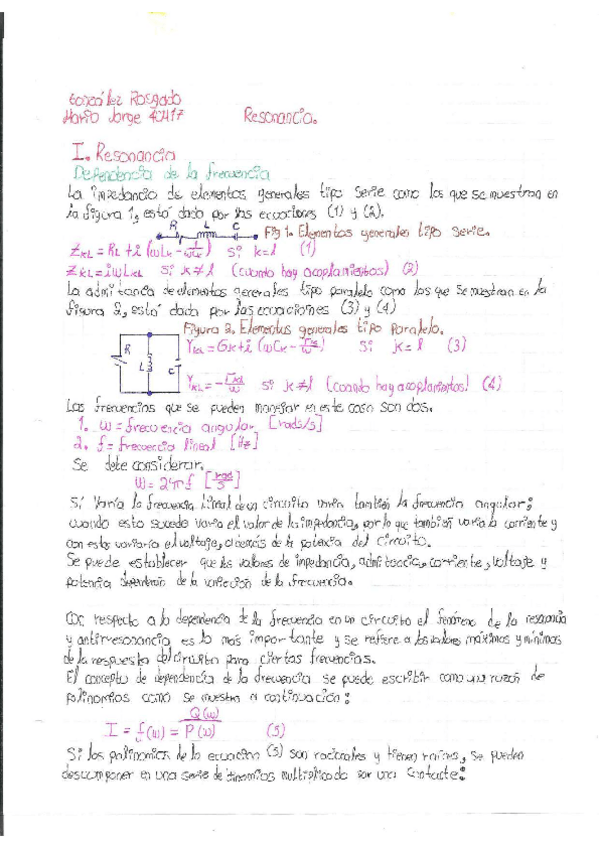 González Rosgado
Mario Jorge 40417 Resonancia.
I. Resonancia
Dependencia de la frecuencia
La impedancia de elementos generales tipo serie como los que se muestran en
la figura 1, está dado por las ecuaciones (1) y (2).
R L C
Fig 1. Elementos generales tipo serie.
Si k=l (1)
Si k≠l (cuando hay acoplamientos) (2)
La admitancia de elementos generales tipo paralelo como los que se muestran en la
figura 2, está dado por las ecuaciones (3) y (4)
Figura 2. Elementos generales tipo paralelo.
R L C
Si k=l (3)
si k≠l (cuando hay acoplamientos) (4)
Las frecuencias que se pueden manejar en este caso son dos.
1. ω = frecuencia angular [rads/s]
2. f = frecuencia lineal [Hz]
Se debe considerar.
ω = 2πf [rad/s]
Si varía la frecuencia lineal de un circuito varía también la frecuencia angular;
cuando esto sucede varía el valor de la impedancia, por lo que también varía la corriente y
con estos variaría el voltaje, además de la potencia del circuito.
Se puede establecer que los valores de impedancia, admitancia, corriente, voltaje y
potencia dependerán de la variación de la frecuencia.
respecto a la dependencia de la frecuencia en un circuito el fenómeno de la resonancia
y antirresonancia es lo más importante y se refiere a los valores máximos y mínimos
de la respuesta del circuito para ciertas frecuencias.
El concepto de dependencia de la frecuencia se puede escribir como una razón de
polinomios como se muestra a continuación:
I = f(ω) = Q(ω)/P(ω) (5)
Si los polinomios de la ecuación (5) son racionales y tienen raíces, se pueden
descomponer en una serie de binomios multiplicado por una constante: